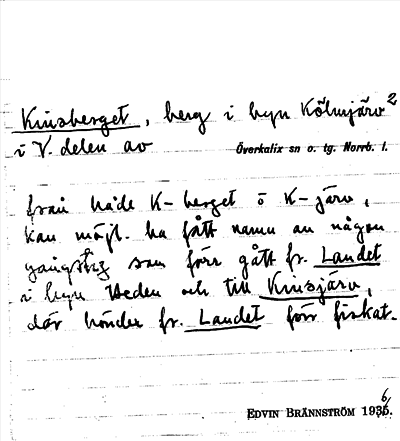 Kinsberget, berg i byn Kölmjärv 2
i V. delen av Överkalix sn o. tg. Norrb. l.
från både K-berget o K-järv,
kan möjl. ha fått namn av någon
gångstig som förr gått fr. Landet
i byn Heden och till Kinsjärv,
där bönder fr. Landet förr fiskat.
EDVIN BRÄNNSTRÖM 1936.